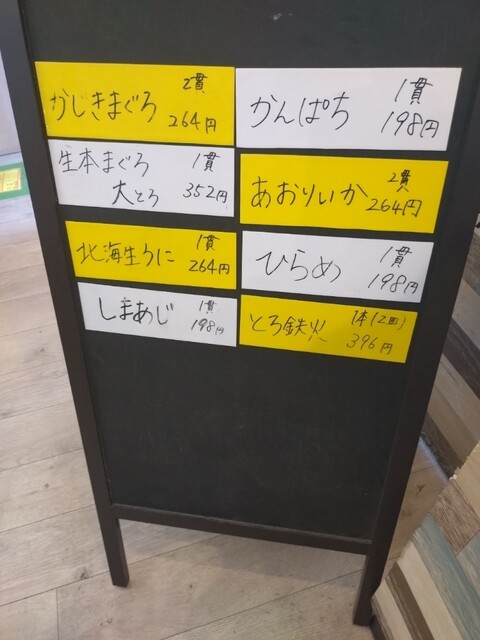 かじきまぐろ 2貫 264円
かんぱち 1貫 198円
生本まぐろ 1貫
大とろ 352円
あおりいか 2貫 264円
北海生うに 1貫 264円
ひらめ 1貫 198円
しまあじ 1貫 198円
とろ鉄火 1本(2皿) 396円